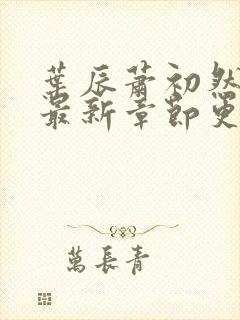 葉辰蕭初然
最新章節更
萬長青